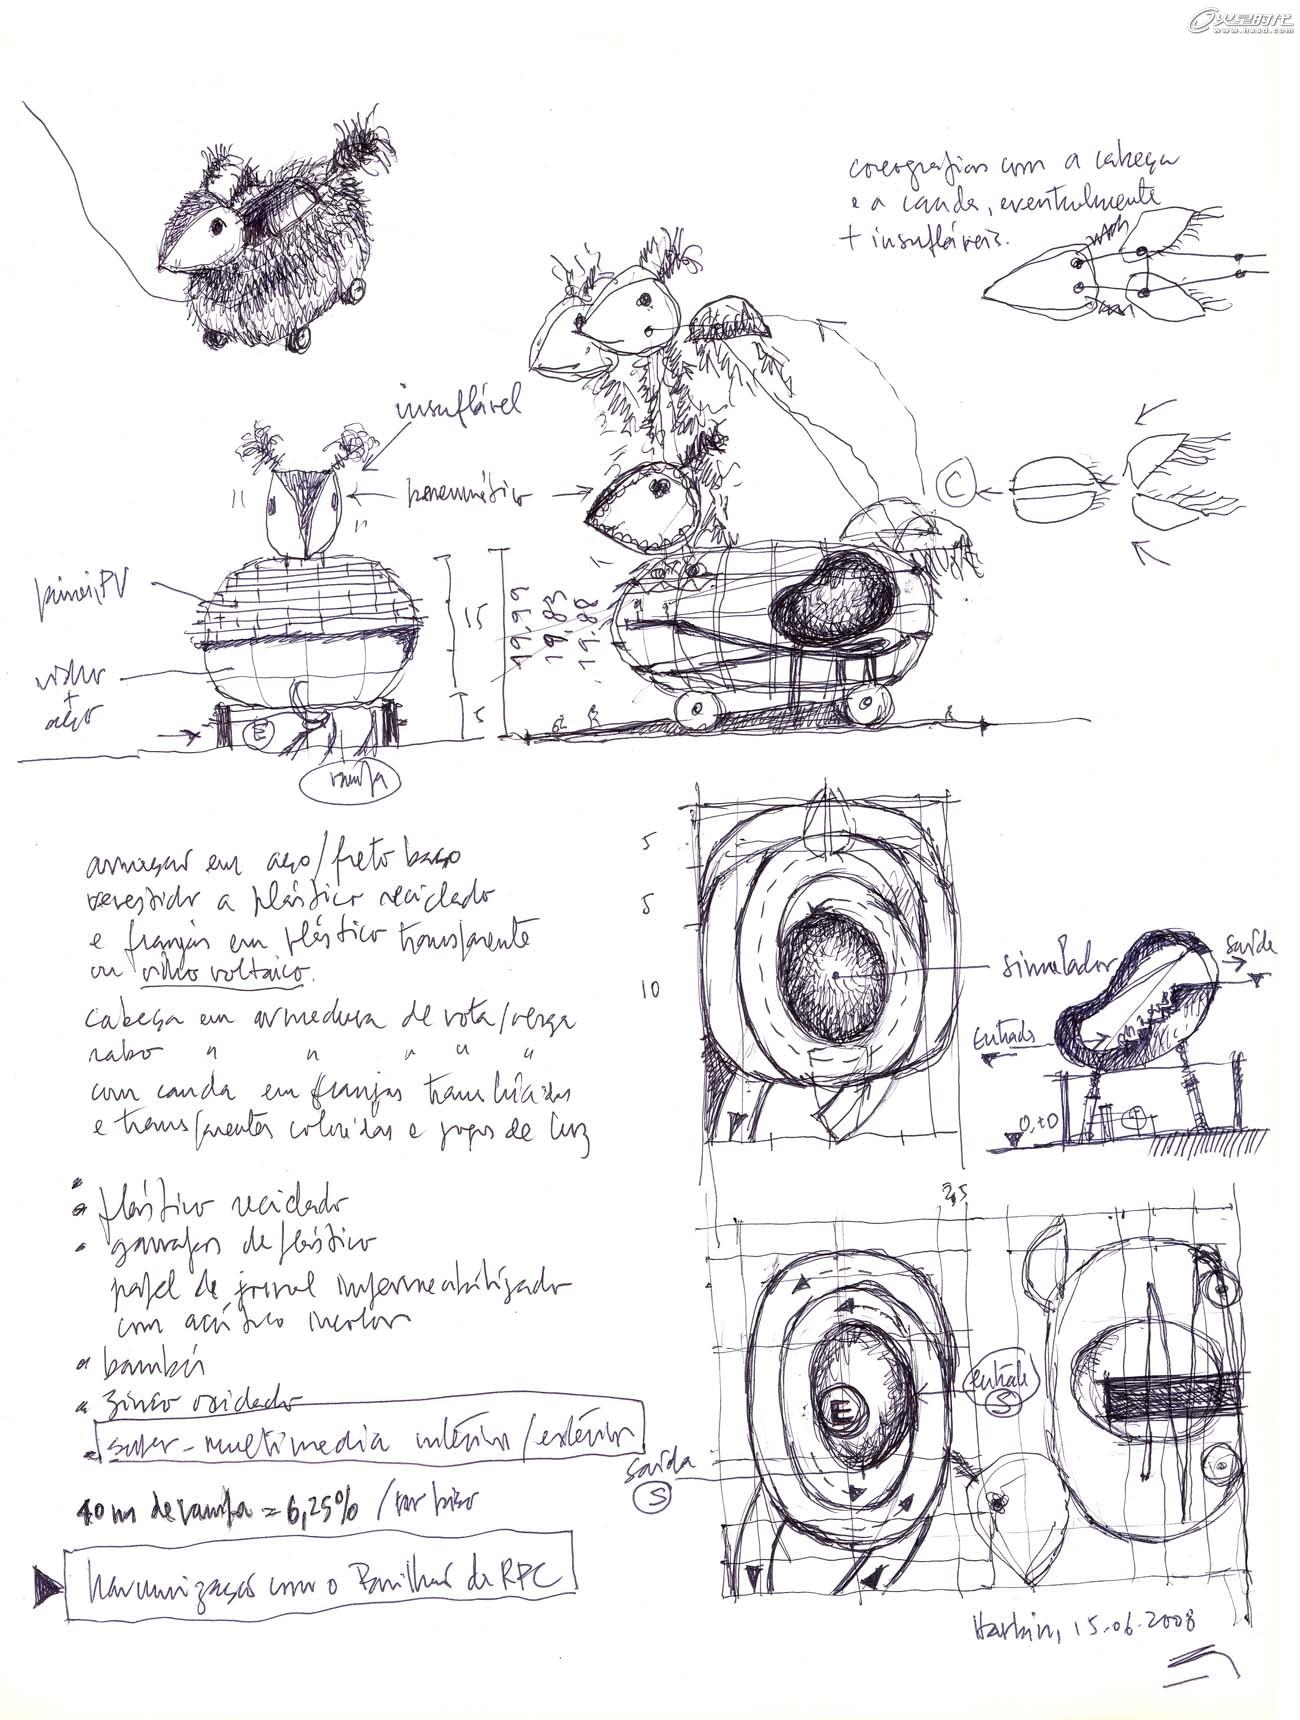 火星时代
www.hxsd.com
coreografias com a cabeça
e a cauda, eventualmente
+ insufláveis.
insuflável
pneumático
C
painéis PV
vidro
+
aço
15
5
19,99
19.83
19.88
E
rampa
armação em aço/preto baço
revestida a plástico reciclado
e franjas em plástico transparente
ou vidro voltaico.
cabeça em armadura de rota/verga
rabo " " " " "
com cauda em franjas translúcidas
e transparentes coloridas e jogos de luz
5
5
10
simulador
saída
entrada
0,+0
• plástico reciclado
• garrafas de plástico
papel de jornal impermeabilizado
com acrílico incolor
• bambú
• zinco oxidado
• super-multimedia interior/exterior
40 m de rampa = 6,25% /por piso
harmonização com o Pavilhão da RPC
2,5
entrada
S
E
saída
S
Harbin, 15.06.2008